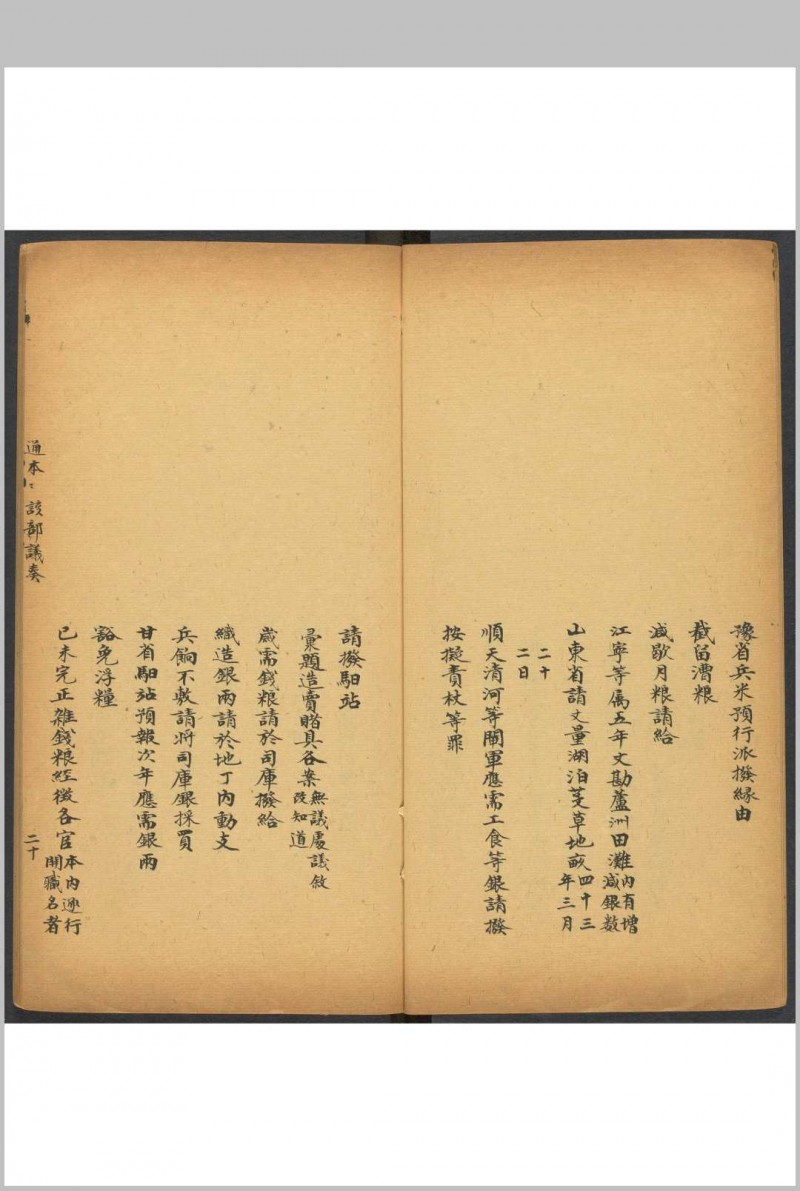 豫省兵米預行派撥緣由
截留漕糧
減歇月粮請給
江寧等属五年丈勘蘆洲田灘内有增減銀数
山東省請丈量湖泊芰草地畝四十三年三月
二十二日
順天清河等閘軍應需工食等銀請撥
按擬責杖等罪
請撥馹站
彙題造賣賭具各案無議處議敘改知道
歲需錢粮請於司庫撥給
織造銀兩請於地丁内動支
兵餉不敷請將司庫銀採買
甘省馹站預報次年應需銀兩
豁免浮糧
已未完正雜錢粮經徵各官本内逐行開職名者
通本〻該部議奏
二十